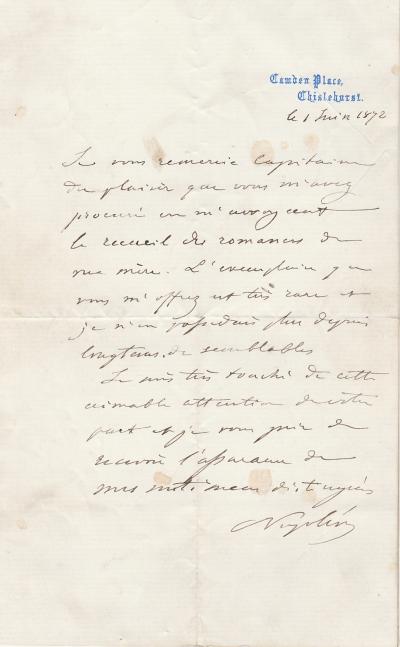 Camden Place,
Chislehurst.
le 1 Juin 1872
Je vous remercie Capitaine
du plaisir que vous m'avez
procuré en m'envoyant
le recueil des romances de
ma mère. L'exemplaire que
vous m'offrez est très rare et
je n'en possédais plus depuis
longtems de semblables
Je suis très touché de cette
aimable attention de votre
part et je vous prie de
recevoir l'assurance de
mes sentimens distingués
Napoléon